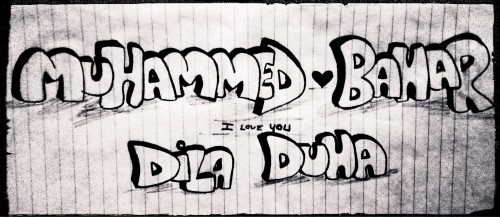 MUHAMMED ♥ BAHAR
I LOVE YOU
DiLA DUHA